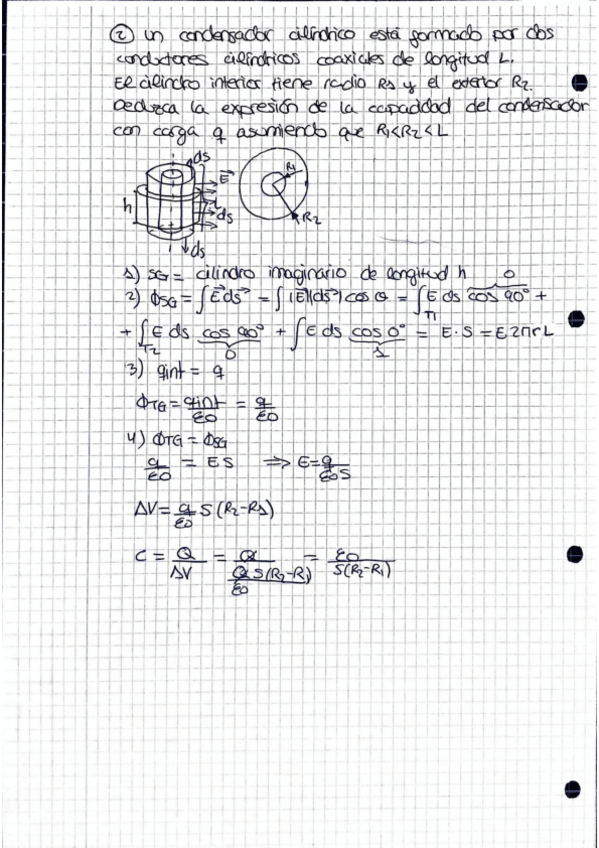 ② Un condensador cilíndrico está formado por dos
conductores cilíndricos coaxiales de longitud L.
El cilindro interior tiene radio R1 y el exterior R2.
Deduzca la expresión de la capacidad del condensador
con carga q asumiendo que R1<R2<L
ds
E→
h
ds
ds
R1
R2
1) SG = cilindro imaginario de longitud h
2) ϕSG = ∫E→ds→ = ∫|E→||ds→| cos θ = ∫T1 E ds cos 90° + 0
+ ∫T2 E ds cos 90° + ∫E ds cos 0° = E·S = E2πrL
0 1
3) qint = q
ϕTG = qint/ε0 = q/ε0
4) ϕTG = ϕSG
q/ε0 = ES ⇒ E = q/ε0S
ΔV = q/ε0 S(R2-R1)
C = Q/ΔV = Q/(Q/ε0 S(R2-R1)) = ε0/S(R2-R1)